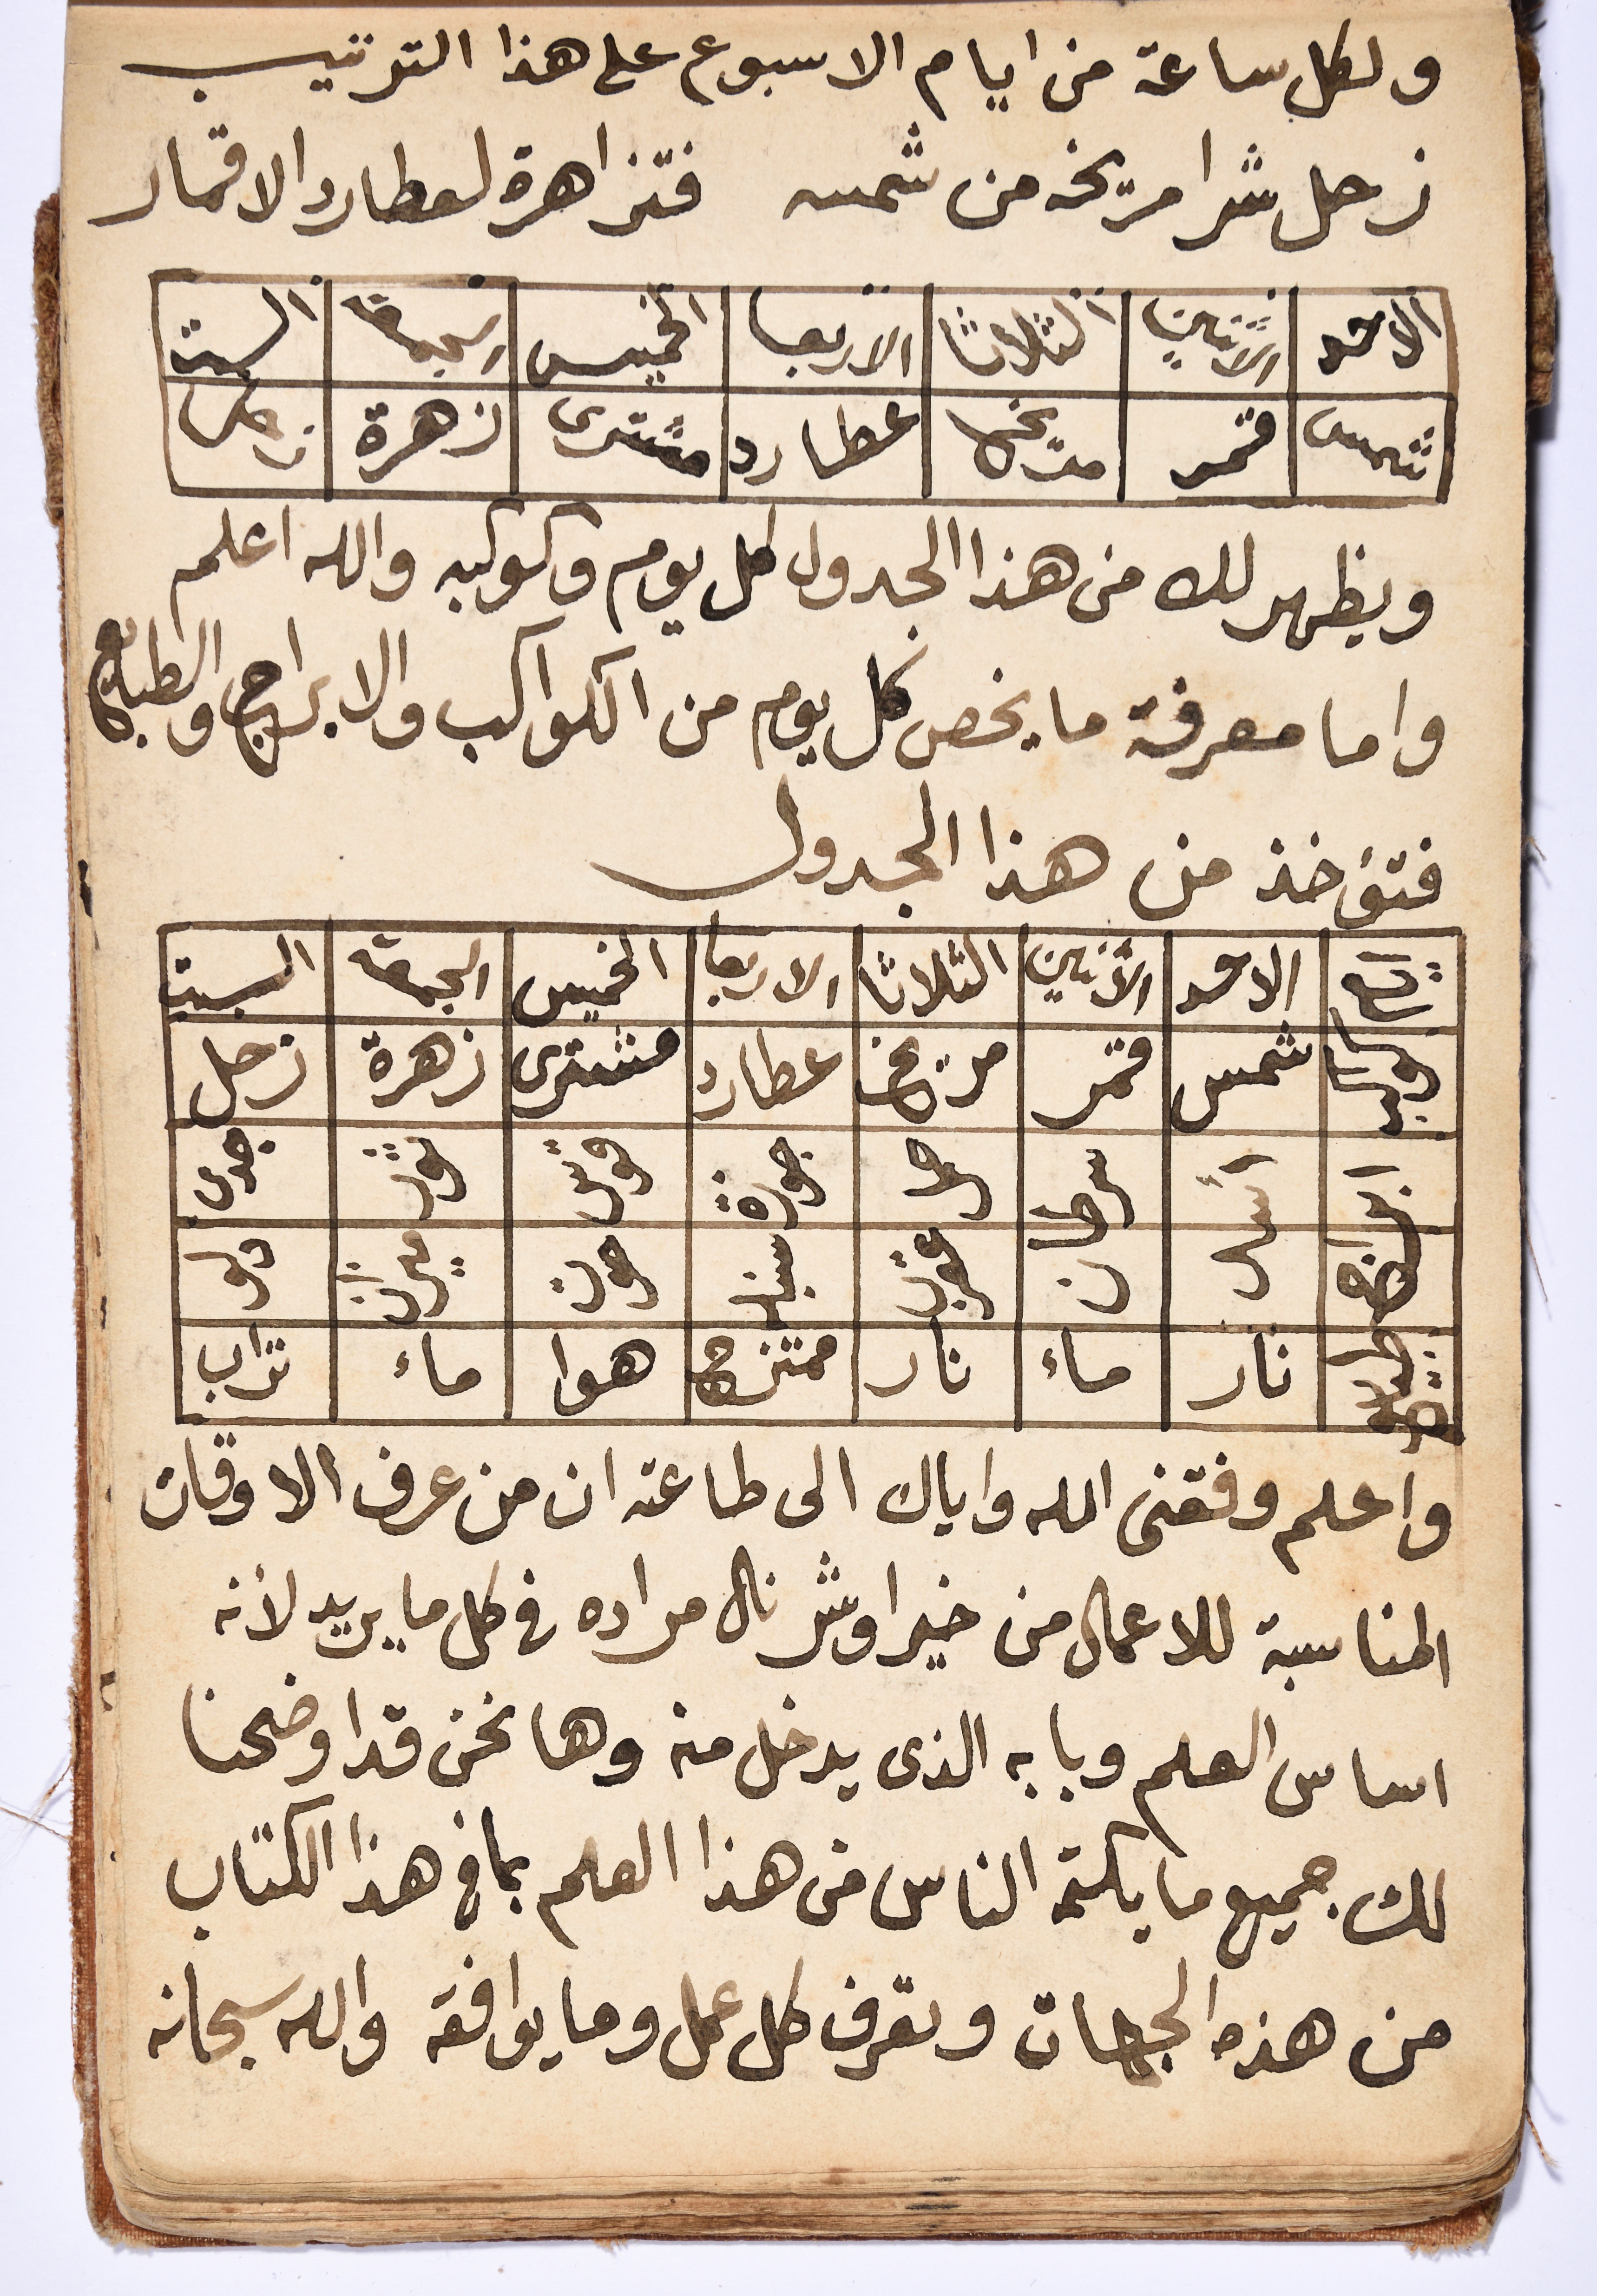 ولكل ساعة من ايام الاسبوع على هذا الترتيب
زحل شرا مرّيخه من شمسه فتزاهرة لعطارد الاقمار
الاحد الاثنين الثلاثا الاربعا الخميس الجمعة السبت
شمس قمر مريخ عطارد مشترى زهرة زحل
ويظهر لك من هذا الجدول كل يوم وكوكبه والله اعلم
واما معرفة ما يخص كل يوم من الكواكب والابراج والطبايع
فتؤخذ من هذا الجدول
ايام الاحد الاثنين الثلاثا الاربعا الخميس الجمعة السبت
كواكب شمس قمر مريخ عطارد مشترى زهرة زحل
ابراج اسد سرطان حمل جوزة قوس ثور جدى
عقرب سنبله حوت ميزان دلو
طبايع نار ماء نار ممتزج هوا ماء تراب
واعلم وفقنى الله واياك الى طاعته ان من عرف الاوقات
المناسبة للاعمال من خير اوشر نال مراده فى كل ما يريد لأنه
اساس العلم وبابه الذى يدخل منه وها نحن قد اوضحنا
لك جميع ما يكتمه الناس من هذا العلم بما فى هذا الكتاب
من هذه الجهات وتعرف كل عمل وما يوافقه والله سبحانه